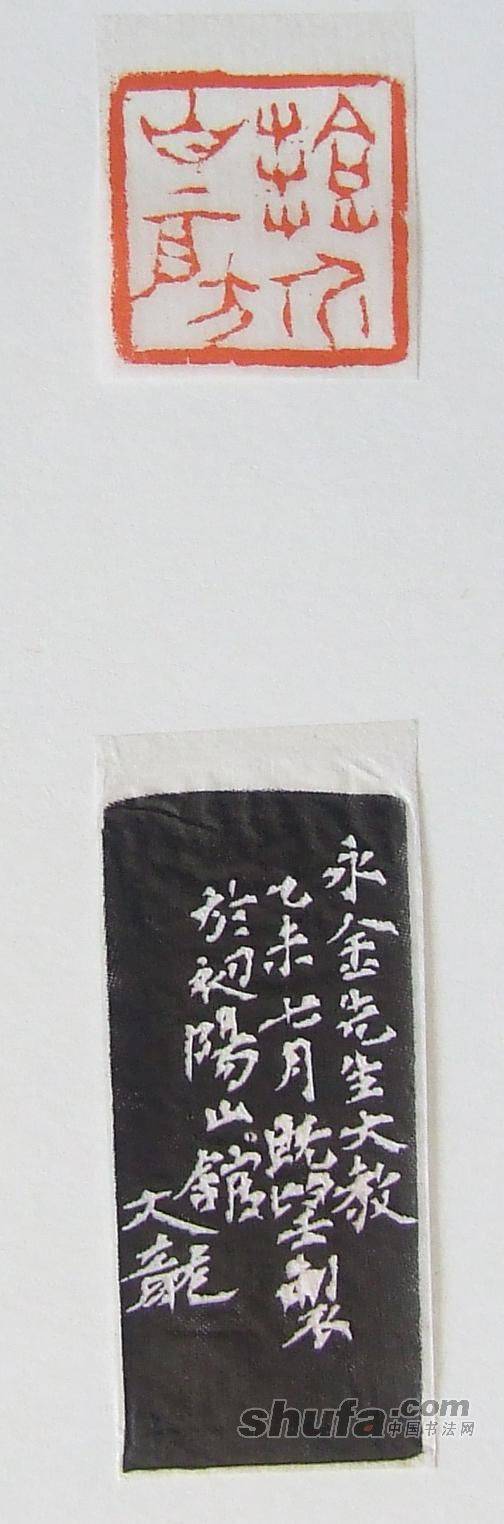 永金先生大教
乙未七月既望製
於初陽山館
大龍
shufa.com
中国书法网